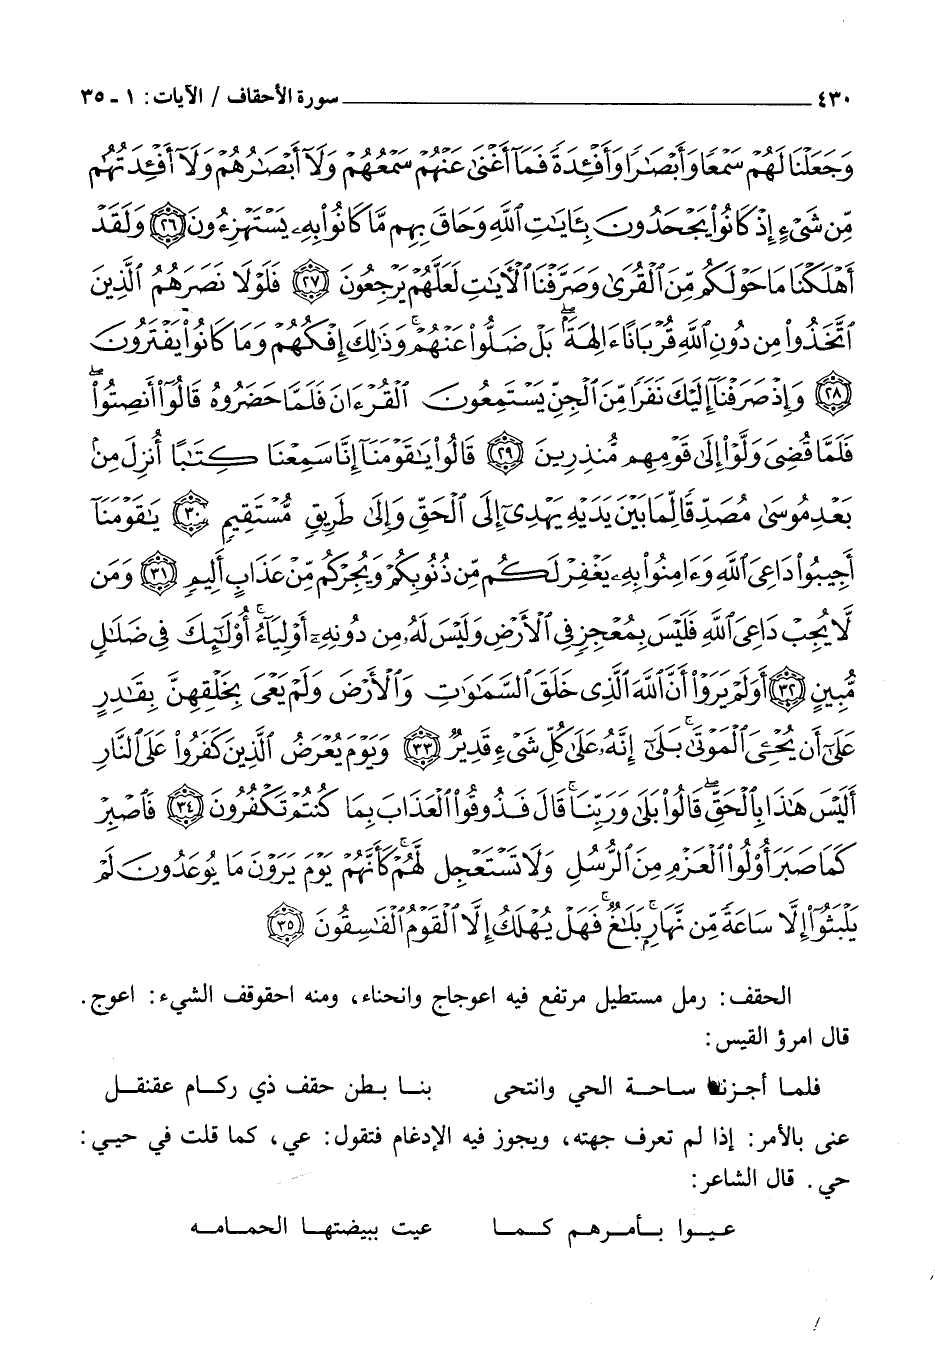 ٤٣٠ سورة الأحقاف / الآيات: ١ - ٣٥
وَجَعَلْنَا لَهُمْ سَمْعًا وَأَبْصَٰرًا وَأَفْـِٔدَةً فَمَآ أَغْنَىٰ عَنْهُمْ سَمْعُهُمْ وَلَآ أَبْصَٰرُهُمْ وَلَآ أَفْـِٔدَتُهُم
مِّن شَىْءٍ إِذْ كَانُوا۟ يَجْحَدُونَ بِـَٔايَٰتِ ٱللَّهِ وَحَاقَ بِهِم مَّا كَانُوا۟ بِهِۦ يَسْتَهْزِءُونَ ٢٦ وَلَقَدْ
أَهْلَكْنَا مَا حَوْلَكُم مِّنَ ٱلْقُرَىٰ وَصَرَّفْنَا ٱلْـَٔايَٰتِ لَعَلَّهُمْ يَرْجِعُونَ ٢٧ فَلَوْلَا نَصَرَهُمُ ٱلَّذِينَ
ٱتَّخَذُوا۟ مِن دُونِ ٱللَّهِ قُرْبَانًا ءَالِهَةًۖ بَلْ ضَلُّوا۟ عَنْهُمْۚ وَذَٰلِكَ إِفْكُهُمْ وَمَا كَانُوا۟ يَفْتَرُونَ
٢٨ وَإِذْ صَرَفْنَآ إِلَيْكَ نَفَرًا مِّنَ ٱلْجِنِّ يَسْتَمِعُونَ ٱلْقُرْءَانَ فَلَمَّا حَضَرُوهُ قَالُوٓا۟ أَنصِتُوا۟ۖ
فَلَمَّا قُضِىَ وَلَّوْا۟ إِلَىٰ قَوْمِهِم مُّنذِرِينَ ٢٩ قَالُوا۟ يَٰقَوْمَنَآ إِنَّا سَمِعْنَا كِتَٰبًا أُنزِلَ مِنۢ
بَعْدِ مُوسَىٰ مُصَدِّقًا لِّمَا بَيْنَ يَدَيْهِ يَهْدِىٓ إِلَى ٱلْحَقِّ وَإِلَىٰ طَرِيقٍ مُّسْتَقِيمٍ ٣٠ يَٰقَوْمَنَآ
أَجِيبُوا۟ دَاعِىَ ٱللَّهِ وَءَامِنُوا۟ بِهِۦ يَغْفِرْ لَكُم مِّن ذُنُوبِكُمْ وَيُجِرْكُم مِّنْ عَذَابٍ أَلِيمٍ ٣١ وَمَن
لَّا يُجِبْ دَاعِىَ ٱللَّهِ فَلَيْسَ بِمُعْجِزٍ فِى ٱلْأَرْضِ وَلَيْسَ لَهُۥ مِن دُونِهِۦٓ أَوْلِيَآءُۚ أُو۟لَٰٓئِكَ فِى ضَلَٰلٍ
مُّبِينٍ ٣٢ أَوَلَمْ يَرَوْا۟ أَنَّ ٱللَّهَ ٱلَّذِى خَلَقَ ٱلسَّمَٰوَٰتِ وَٱلْأَرْضَ وَلَمْ يَعْىَ بِخَلْقِهِنَّ بِقَٰدِرٍ
عَلَىٰٓ أَن يُحْـِۧىَ ٱلْمَوْتَىٰۚ بَلَىٰٓ إِنَّهُۥ عَلَىٰ كُلِّ شَىْءٍ قَدِيرٌ ٣٣ وَيَوْمَ يُعْرَضُ ٱلَّذِينَ كَفَرُوا۟ عَلَى ٱلنَّارِ
أَلَيْسَ هَٰذَا بِٱلْحَقِّۖ قَالُوا۟ بَلَىٰ وَرَبِّنَاۚ قَالَ فَذُوقُوا۟ ٱلْعَذَابَ بِمَا كُنتُمْ تَكْفُرُونَ ٣٤ فَٱصْبِرْ
كَمَا صَبَرَ أُو۟لُوا۟ ٱلْعَزْمِ مِنَ ٱلرُّسُلِ وَلَا تَسْتَعْجِل لَّهُمْۚ كَأَنَّهُمْ يَوْمَ يَرَوْنَ مَا يُوعَدُونَ لَمْ
يَلْبَثُوٓا۟ إِلَّا سَاعَةً مِّن نَّهَارٍۭۚ بَلَٰغٌۚ فَهَلْ يُهْلَكُ إِلَّا ٱلْقَوْمُ ٱلْفَٰسِقُونَ ٣٥
الحقف: رمل مستطيل مرتفع فيه اعوجاج وانحناء، ومنه احقوقف الشيء: اعوج.
قال امرؤ القيس:
فلما أجزنا ساحة الحي وانتحى بنا بطن حقف ذي ركام عقنقل
عنى بالأمر: إذا لم تعرف جهته، ويجوز فيه الإدغام فتقول: عي، كما قلت في حيي:
حي. قال الشاعر:
عيوا بأمرهم كما عيت ببيضتها الحمامه